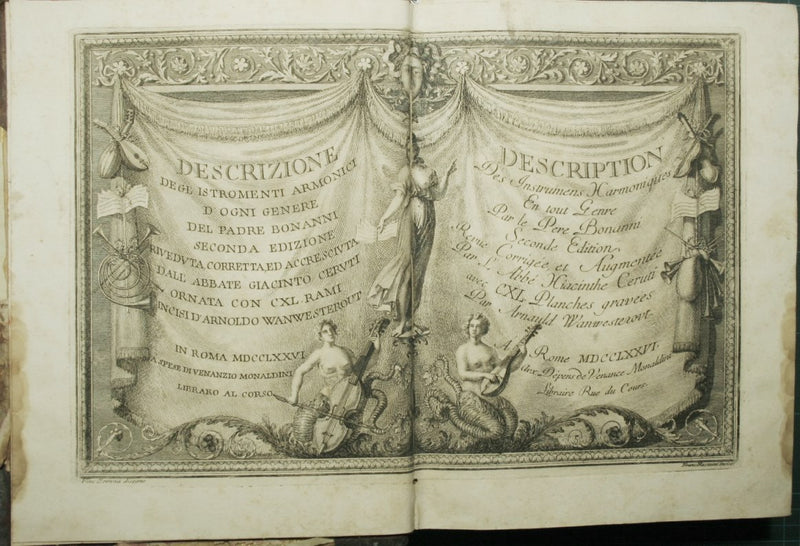 DESCRIZIONE
DEGL'ISTROMENTI ARMONICI
D'OGNI GENERE
DEL PADRE BONANNI
SECONDA EDIZIONE
RIVEDUTA, CORRETTA, ED ACCRESCIUTA
DALL'ABBATE GIACINTO CERUTI
ORNATA CON CXL RAMI
INCISI D'ARNOLDO WANWESTEROUT
IN ROMA MDCCLXXVI
A SPESE DI VENANZIO MONALDINI
LIBRARO AL CORSO
DESCRIPTION
Des Instrumens Harmoniques
En tout Genre
Par le Pere Bonanni
Seconde Edition
Revue Corrigée, et Augmentée
Par L'Abbé Hiacinthe Ceruti
avec CXL Planches gravées
Par Arnauld Wanwesterout
A Rome MDCCLXXVI.
aux Dépens de Venance Monaldini
Libraire Rue du Cours